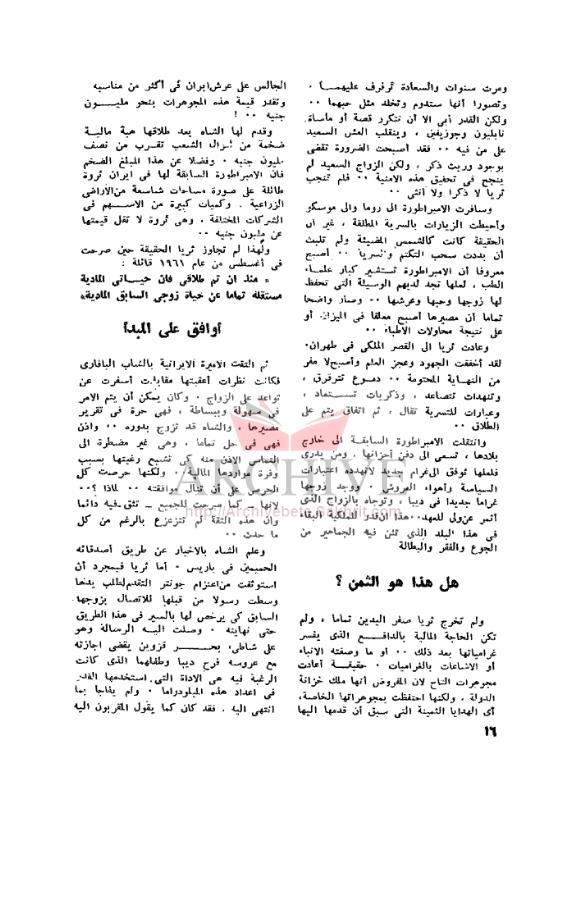 ومرت سنوات والسعادة ترفرف عليهمـا ،
وتصورا أنها ستدوم وتخلد مثل حبهما ٠٠
ولكن القدر أبى الا أن تتكرر قصة أو مأساة
نابليون وجوزيفين ، وينقلب العش السعيد
على من فيه ٠٠ فقد أصبحت الضرورة تقضى
بوجود وريث ذكر ، ولكن الزواج السعيد لم
ينجح فى تحقيق هذه الامنية ٠٠ فلم تنجب
ثريا لا ذكرا ولا أنثى ٠٠
وسافرت الامبراطورة الى روما والى موسكو
وأحيطت الزيارات بالسرية المطلقة ، غير أن
الحقيقة كانت كالشمس المضيئة ولم تلبث
أن بددت سحب التكتم والسرية ٠٠ أصبح
معروفا أن الامبراطورة تستشير كبار علمـاء
الطب ، لعلها تجد لديهم الوسيلة التى تحفظ
لها زوجها وحبها وعرشها ٠٠ وصار واضحا
تماما أن مصيرها أصبح معلقا فى الميزان أو
على نتيجة محاولات الاطباء ٠٠
وعادت ثريا الى القصر الملكى فى طهران٠
لقد أخفقت الجهود وعجز العلم وأصبح لا مفر
من النهـاية المحتومة ٠٠ دمـوع تترقرق ،
وتنهدات تتصاعد ، وذكريات تسـتعاد ،
وعبارات للتسرية تقال ، ثم اتفاق يتم على
الطلاق ٠٠
وانتقلت الامبراطورة السابقـة الى خارج
بلادها ، تسعى الى دفن أحزانها ٠ ومن يدرى
فلعلها توفق الى غرام جديد لا تهدده اعتبارات
السياسة وأهواء العروش ٠ ووجد زوجها
غراما جديدا فى ديبا ، وتوجاه بالزواج الذى
أثمر عن ولى للعهد٠٠هذا ان قدر للملكية البقاء
فى هذا البلد الذى تئن فيه الجماهير من
الجوع والفقر والبطالة
هل هذا هو الثمن ؟
ولم تخرج ثريا صفر اليدين تماما ، ولم
تكن الحاجة المالية بالدافـع الذى يفسر
غرامياتها بعد ذلك ٠٠ او ما وصفته الانباء
أو الاشاعات بالغراميات ٠ حقيقـة أعادت
مجوهرات التاج لان المفروض أنها ملك خزانة
الدولة ، ولكنها احتفظت بمجوهراتها الخاصة،
أى الهدايا الثمينة التى سبق أن قدمها اليها
الجالس على عرش ايران فى أكثر من مناسبة
وتقدر قيمة هذه المجوهرات بنحو مليـون
جنيه ٠٠ !
وقدم لها الشاه بعد طلاقها هبة مالية
ضخمة من أموال الشعب تقـرب من نصف
مليون جنيه ٠ وفضلا عن هذا المبلغ الضخم
فان الامبراطورة السابقة لها فى ايران ثروة
طائلة على صورة مساحات شاسعة من الأراضى
الزراعية ، وكميات كبيرة من الاسـهم فى
الشركات المختلفة ، وهى ثروة لا تقل قيمتها
عن مليون جنيه ٠٠
ولهذا لم تجاوز ثريا الحقيقة حين صرحت
فى أغسطس من عام ١٩٦١ قائلة :
« منذ ان تم طلاقى فان حيـاتى المادية
مستقلة تماما عن حياة زوجى السابق المادية»
أوافق على المبدأ
ثم التقت الاميرة الايرانية بالشاب البافارى
فكانت نظرات أعقبتها مقابلات أسفرت عن
تواعد على الزواج ٠ وكان يمكن أن يتم الامر
فى سهولة وببساطة ، فهى حرة فى تقرير
مصيرها ، والشاه قد تزوج بدوره ٠٠ واذن
فهى فى حل تماما ، وهى غير مضطرة الى
التماس الاذن منه كى تشبع رغبتها بسبب
وفرة مواردها المالية ٠ ولكنها حرصت كل
الحرص على أن تنال موافقته ٠٠ لماذا ؟٠٠
لأنها ـ كما صرحت للجميع ـ تثق فيه دائما
وان هذه الثقة لم تتزعزع بالرغم من كل
ما حدث ٠٠
وعلم الشاه بالاخبار عن طريق أصدقائه
الحميمين فى باريس ٠ أما ثريا فبمجرد أن
استوثقت من اعتزام جونتر التقدم لطلب يدها
وسطت رسولا من قبلها للاتصال بزوجها
السابق كى يرخص لها بالسير فى هذا الطريق
حتى نهايته ٠ وصلت اليـه الرسالة وهو
على شاطىء بحــر قزوين يقضى اجازته
مع عروسه فرح ديبا وطفلهما الذى كانت
الرغبة فيه هى الاداة التى استخدمها القدر
فى اعداد هذه الميلودراما ٠ ولم يفاجأ بما
انتهى اليه ، فقد كان كما يقول المقربون اليه
١٦
ARCHIVE
http://Archivebeta.Sakhrit.com